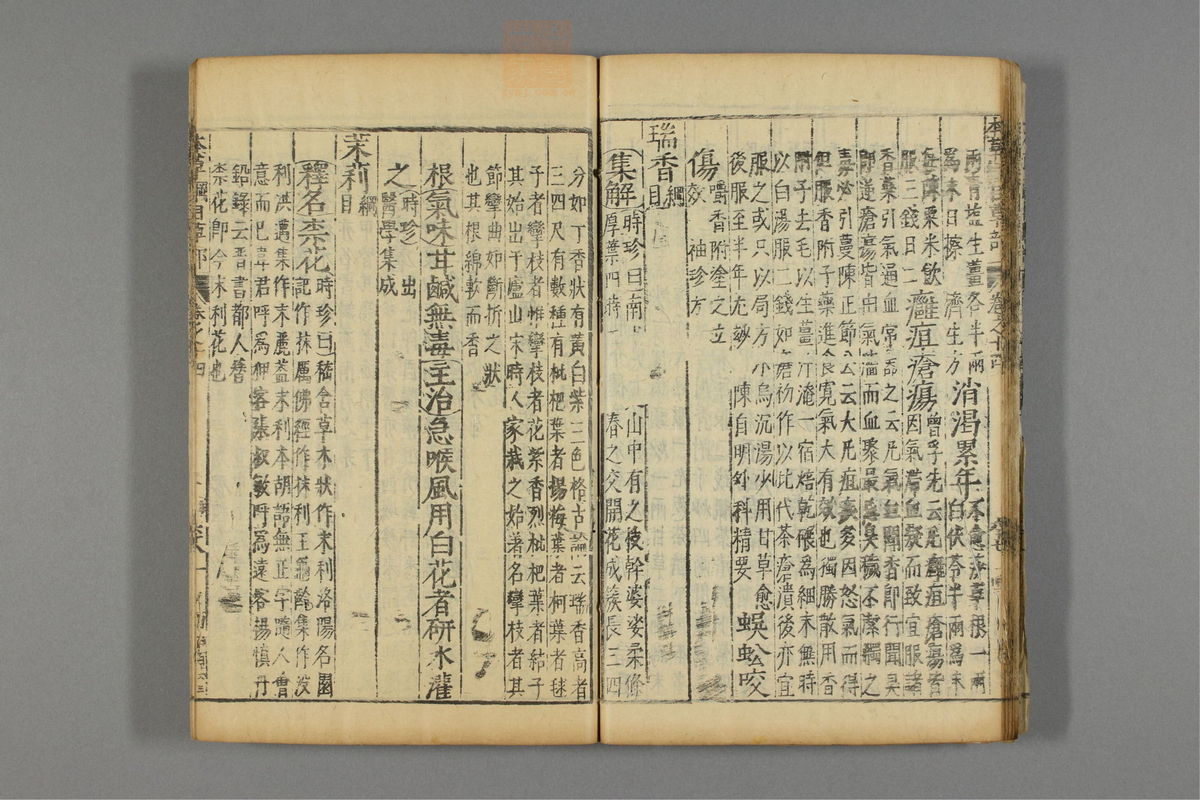 兩青鹽生薑各半兩
為末日擦 濟生方
消渴累年不愈莎草根一兩
白茯苓半兩為末
每陳粟米飲
服三錢日二
癰疽瘡瘍
曾孚先云凡癰疽瘡瘍皆
因氣滯血凝而致宜服諸
香藥引氣通血常器之云凡氣血聞香即行聞臭
即逆瘡瘍皆由氣滯而血聚最忌臭穢不潔觸之
毒必引蔓陳正節公云大凡疽疾多因怒氣而得
但服香附子藥進食寬氣大有效也獨勝散用香
附子去毛以生薑汁淹一宿焙乾碾為細末無時
以白湯服二錢如瘡初作以此代茶瘡潰後亦宜
服之或只以局方小烏沉湯少用甘草愈
後服至半年尤妙 陳自明外科精要
蜈蚣咬
傷
嚼香附塗之立
效 袖珍方
瑞香
綱目
集解
時珍曰南
山中有之枝幹婆娑柔條
厚葉四時
春之交開花成簇長三四
分如丁香狀有黃白紫三色格古論云瑞香高者
三四尺有數種有枇杷葉者楊梅葉者柯葉者毬
子者攣枝者惟攣枝者花紫香烈枇杷葉者結子
其始出于廬山宋時人家栽之始著名攣枝者其
節攣曲如斷折之狀
也其根綿軟而香
根氣味甘鹹無毒主治急喉風用白花者研水灌
之
時珍 出
醫學集成
茉莉
綱目
釋名柰花
時珍曰嵇含草木狀作末利洛陽名園
記作抹厲佛經作抹利王龜齡集作沒
利洪邁集作末麗蓋末利本胡語無正字隨人會
意而已韋君呼為狎客張敏叔呼為遠客楊慎丹
鉛錄云晉書都人簪
柰花即今末利花也